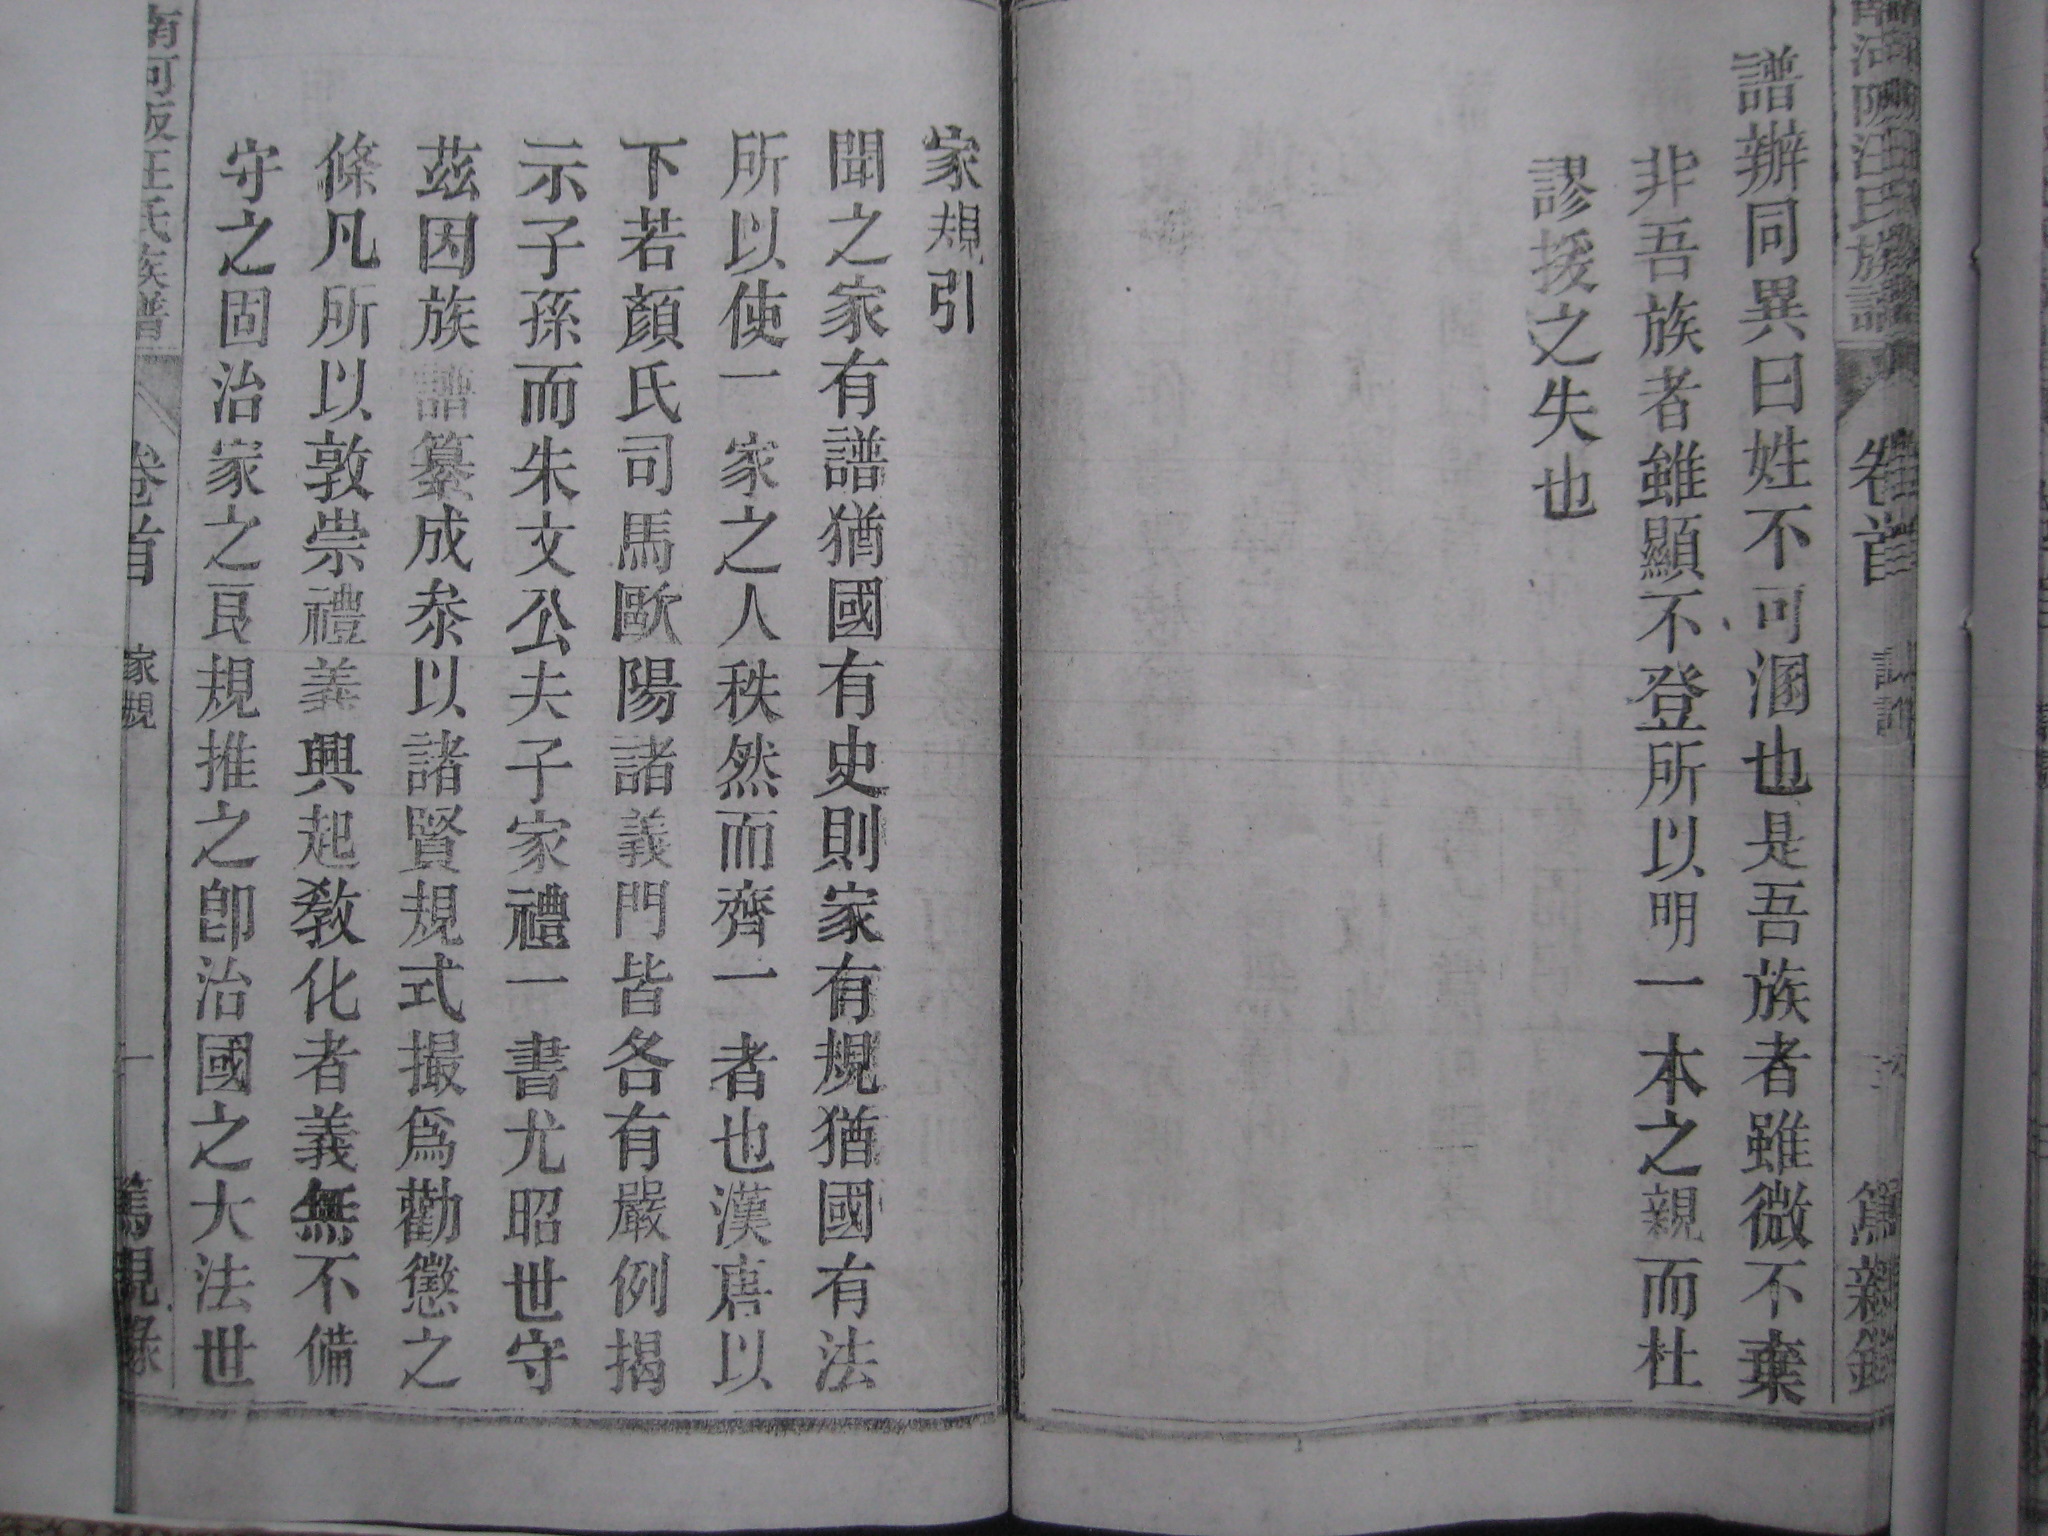 卷首
譜辦同異曰姓不可溷也是吾族者雖微不棄
非吾族者雖顯不登所以明一本之親而杜
謬援之失也
家規引
聞之家有譜猶國有史則家有規猶國有法
所以使一家之人秩然而齊一者也漢唐以
下若顏氏司馬歐陽諸義門皆各有嚴例揭
示子孫而朱文公夫子家禮一書尤昭世守
茲因族譜纂成叅以諸賢規式撮爲勸懲之
條凡所以敦崇禮義興起敎化者義無不備
守之固治家之良規推之卽治國之大法世
南河阪汪氏族譜 卷首 家規 一 篤親錄